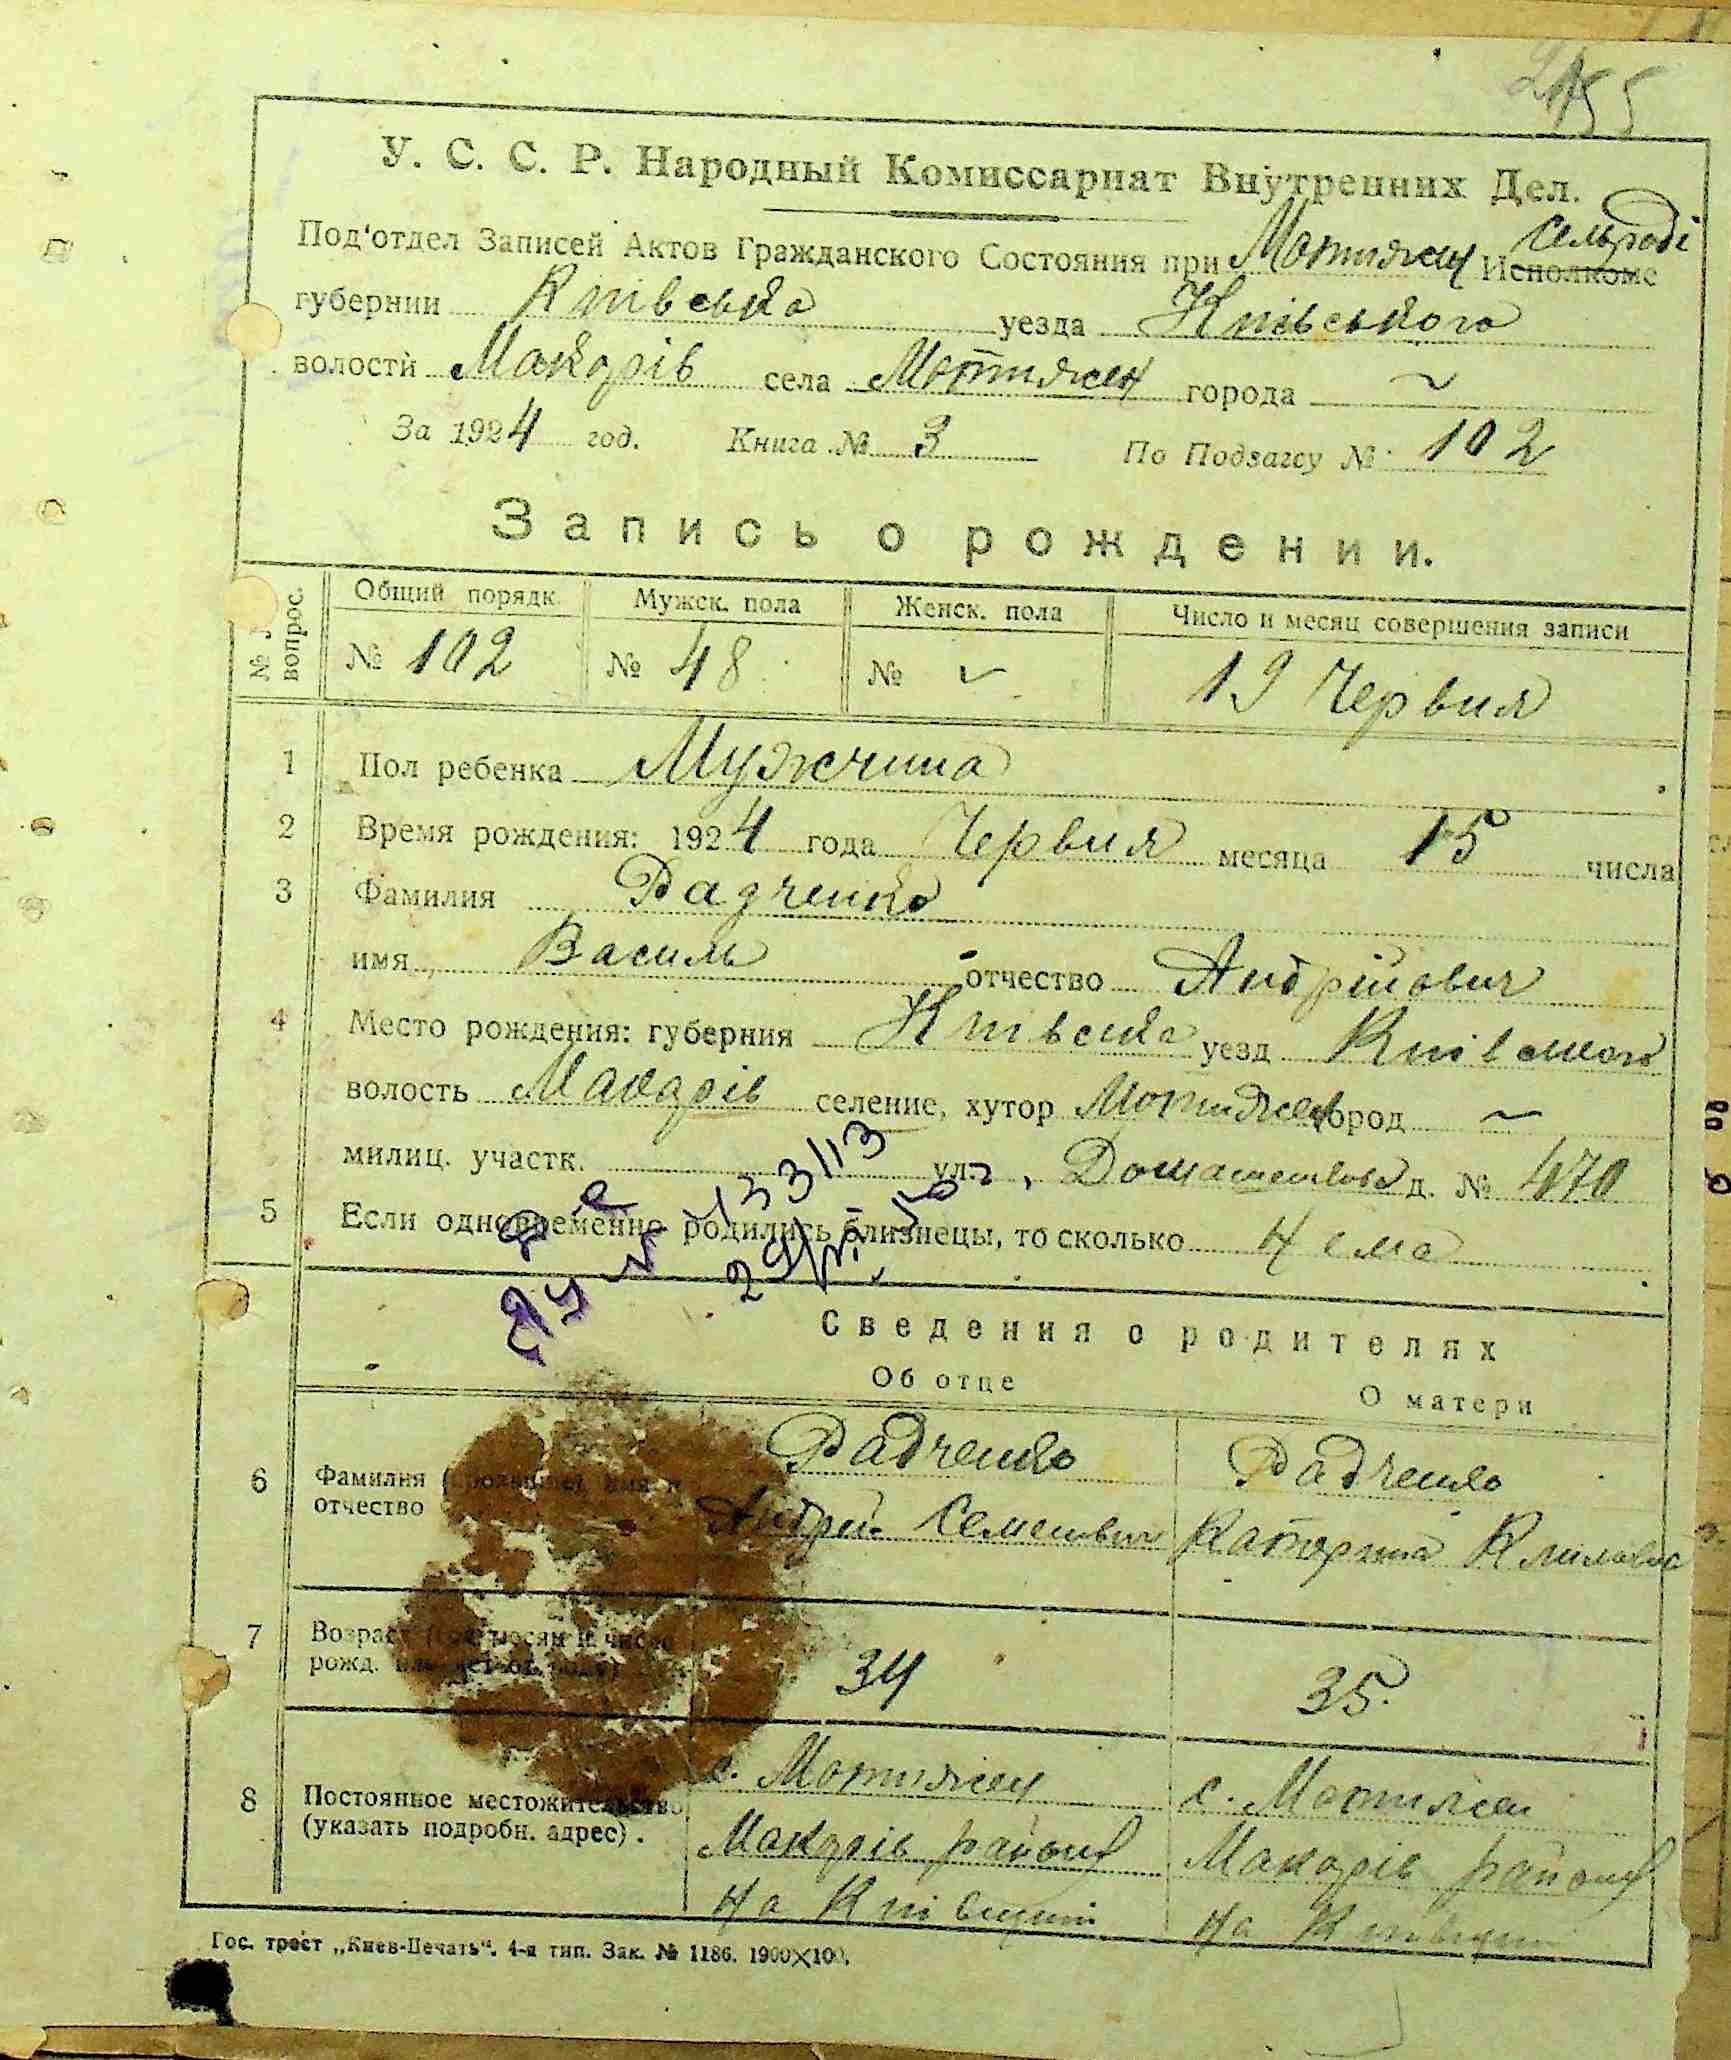 У. С. С. Р. Народный Комиссариат Внутренних Дел.
Под'отдел Записей Актов Гражданского Состояния при Мотижен Исполкоме Сельраді
губернии Київська уезда Київського
волости Макарів села Мотижен города ~
За 1924 год. Книга № 3 По Подзагсу № 102
Запись о рождении.
вопрос. Общий порядк. Мужск. пола Женск. пола Число и месяц совершения записи
№ 102 № 48 № 19 Червня
1 Пол ребенка Мужчина
2 Время рождения: 1924 года Червня месяца 15 числа
3 Фамилия Радченко
имя Василь отчество Андрійович
4 Место рождения: губерния Київська уезд Київського
волость Макарів селение, хутор Мотижен город ~
милиц. участк. ул. д. № 470
5 Если одновременно родились близнецы, то сколько Нема
133113
Сведения о родителях
Об отце О матери
6 Фамилия (прозвище) имя и отчество
Радченко Радченко
Андрій Семенович Катерина
7 Возраст
рожд.
34 35.
8 Постоянное местожительство (указать подробн. адрес).
с. Мотижен с. Мотижен
Макарів район Макарів район
На Київщині На Київщині
Гос. трест „Киев-Печать". 4-я тип. Зак. № 1186. 1900×100.